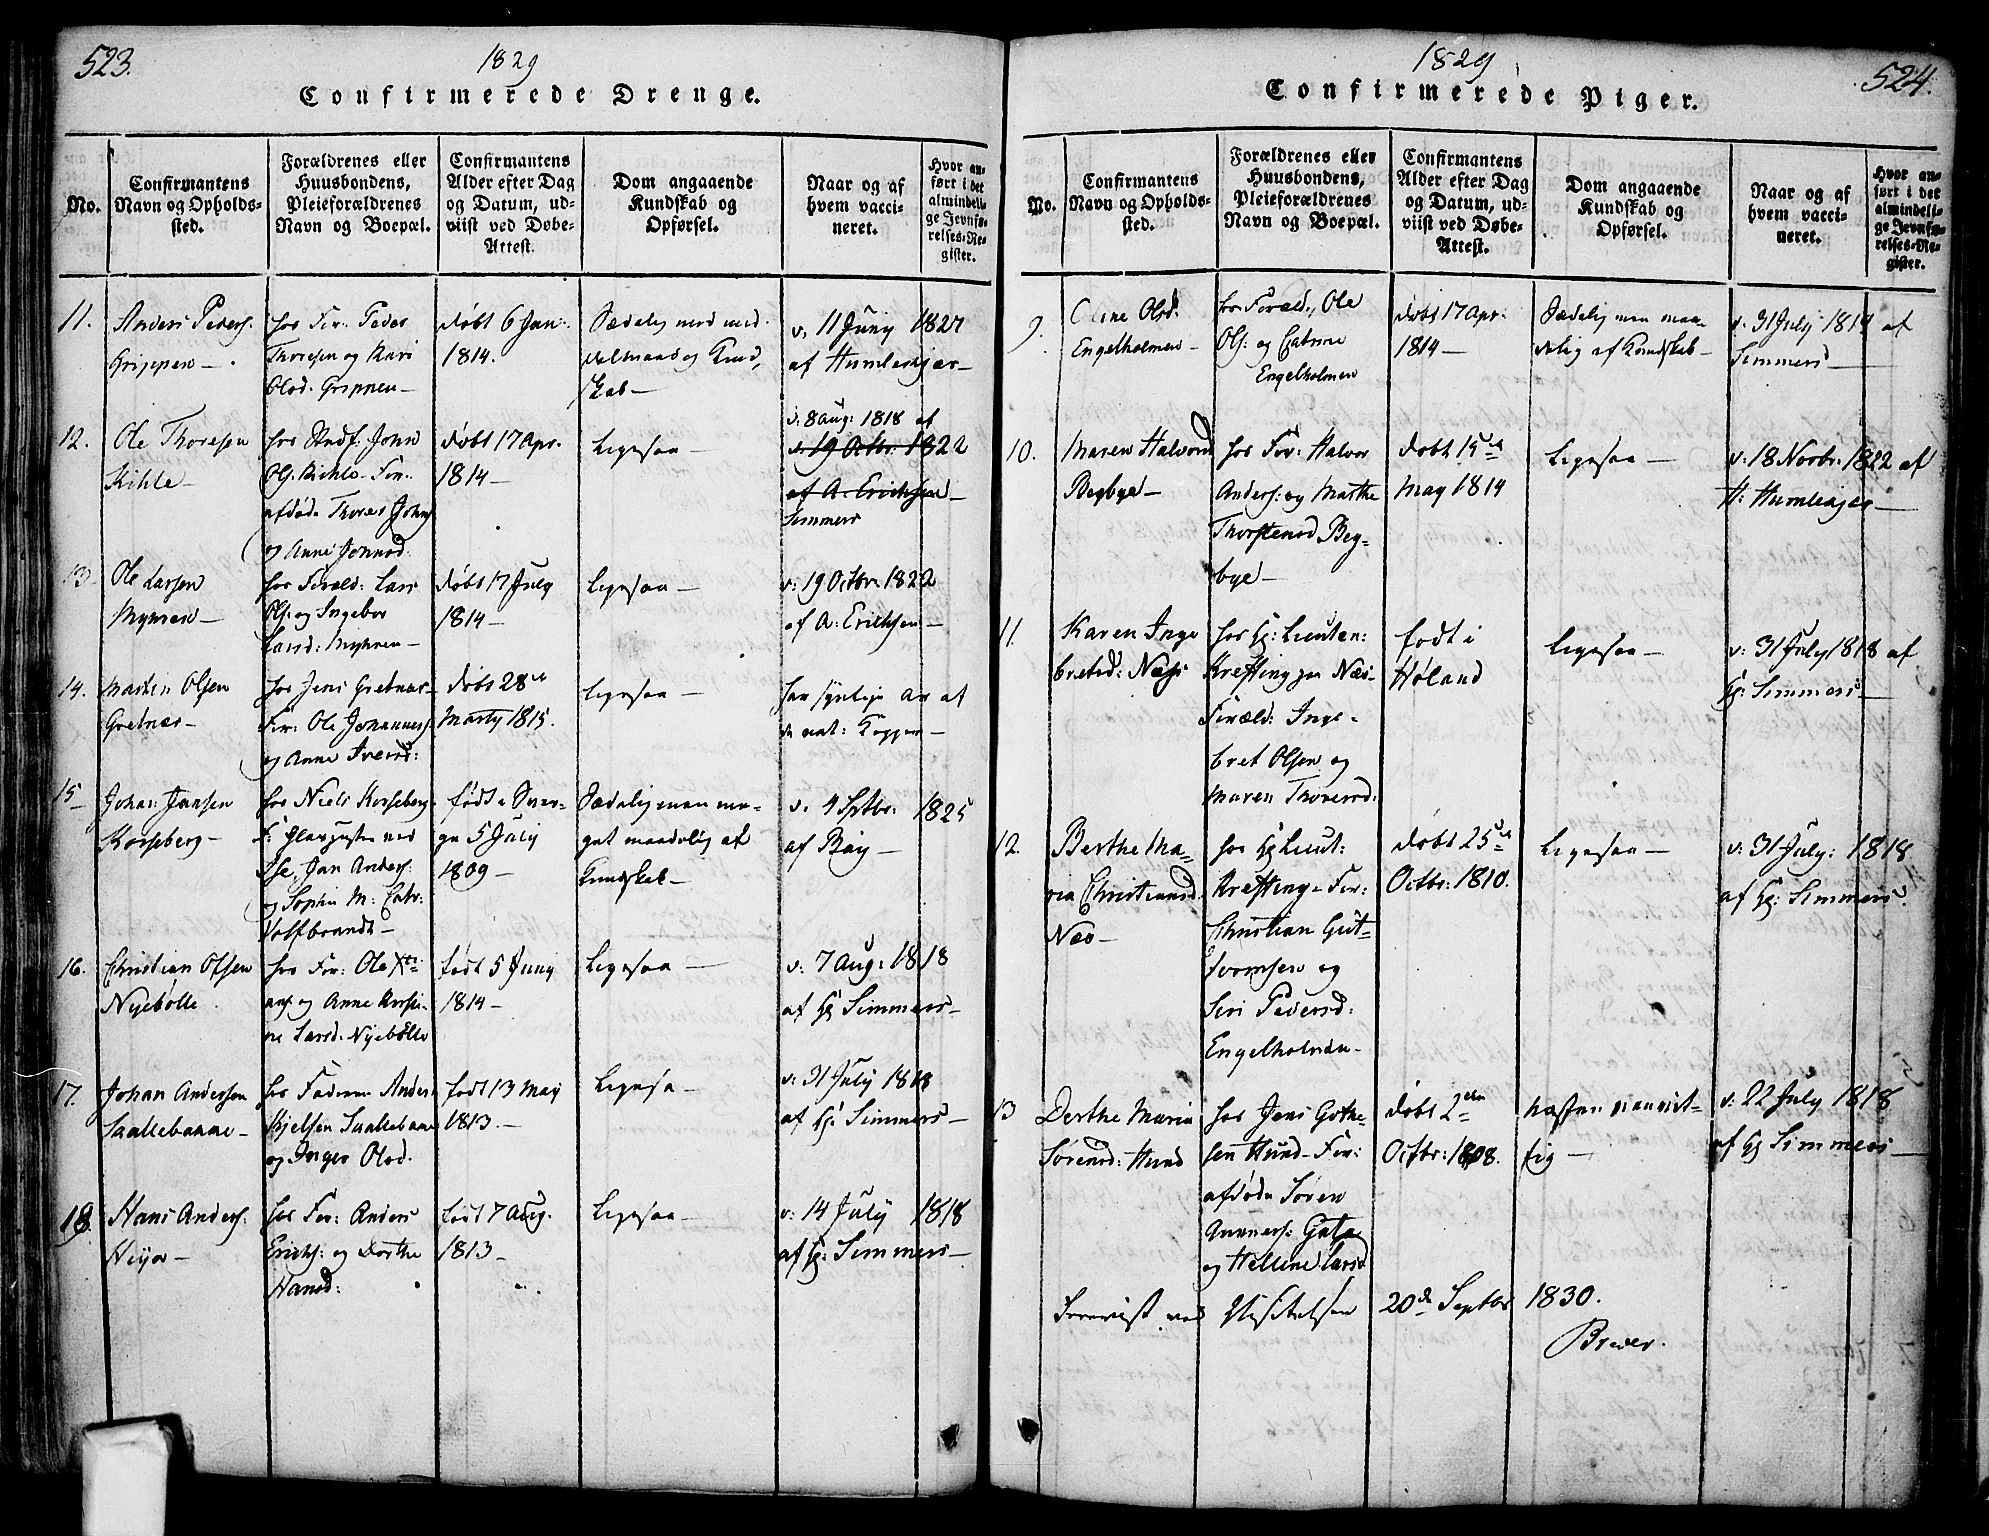 523.
1829
Confirmerede Drenge.
No.
Confirmantens
Navn og Opholds-
sted.
Forældrenes eller
Huusbondens,
Pleieforældrenes
Navn og Boepæl.
Confirmantens
Alder efter Dag
og Datum, ud-
viist ved Døbe-
Attest.
Dom angaaende
Kundskab og
Opførsel.
Naar og af
hvem vacci-
neret.
Hvor an-
ført i det
almindeli-
ge Jevnfø-
relses-Re-
gister.
11.
Anders Peders:
Grippen -
hos For: Peder
Thoresen og Kari
Olsd. Grippen -
døbt 6 Jan:
1814.
Sædelig med mid-
delmaadig Kund-
skab -
v. 11 Juny 1827
af Humlekjær -
12.
Ole Thoresen
Kihle -
hos John
Ols. Kihle - For:
afdøde Thores John
og Anne Jonsd.
døbt 17 Apr.
1814 -
Ligesaa -
v. 8 aug: 1818 af
v. 19 Octbr: 1822
af A. Erichsen -
Simmers
13
Ole Larsen
Myhren -
hos Foræld: Lars
Ols. og Ingebor
Larsd: Myhren -
døbt 17 July
1814 -
Ligesaa -
v: 19 Octbr: 1822
af A: Erichsen -
14.
Martin Olsen
Gretnæs -
hos Jens Gretnæs -
For: Ole Johannes
og Anne Iversd:
døbt 28de
Marty 1815.
Ligesaa -
har synlige Ar af
de nat: Kopper -
15
Johan Jansen
Korseberg -
hos Niels Korseberg
Jan Anders:
og Sophie M: Catr:
Volfbrandt -
født i Sver-
ge 5 July
1809 -
Sædelig men me-
get maadelig af
Kundskab -
v. 4 Septbr: 1825
af Raÿ -
16.
Christian Olsen
Nyebølle.
hos For: Ole Xsti-
ans: og Anne
ne Larsd: Nyebølle
født 5 Juny
1814 -
Ligesaa -
v: 7 Aug: 1818
af Hr. Simmers -
17.
Johan Andersen
Saltebaane -
hos Faderen Anders
Kjelsen Saltebaane
og Inger Olsd.
født 13 May
1813. -
Ligesaa -
v: 31 July 1818
af Hr. Simmers -
18.
Hans Anders:
Heÿer -
hos For: Anders
Erichs: og Dorthe
Hansd:
født 7 Aug.
1813 -
Ligesaa -
v: 14 July 1818
af Hr. Simmers -
1829
524.
Confirmerede Piger.
No.
Confirmantens
Navn og Opholds-
sted.
Forældrenes eller
Huusbondens,
Pleieforældrenes
Navn og Boepæl.
Confirmantens
Alder efter Dag
og Datum, ud-
viist ved Døbe-
Attest.
Dom angaaende
Kundskab og
Opførsel.
Naar og af
hvem vacci-
neret.
Hvor an-
ført i det
almindeli-
ge Jevnfø-
relses-Re-
gister.
9.
Oline Olsd:
Engelholmen -
hos Foræld: Ole
Ols: og Catrine
Engelholmen
døbt 17 Apr:
1814 -
Sædelig men maa-
delig af Kundskab -
v. 31 July 1817 af
Simmers -
10.
Maren Halvorsd
Begbye -
hos For: Halvor
Anders: og Marthe
Thorstensd Beg-
bye -
døbt 15de
May 1814
Ligesaa -
v: 18 Novbr: 1822 af
H: Humlekjær -
11.
Karen Inge
bretsd: Næss
hos Hr: Lieuten:
Krefting paa Næs -
Foræld: Inge-
bret Olsen og
Maren Thoresd:
født i
Høland
Ligesaa -
v: 31 July 1818 af
Hr: Simmers -
12.
Berthe Ma-
ria Christiansd.
Næs -
hos Hr Lieut:
Krefting - For:
Christian Gut-
tormsen og
Siri Pedersd:
Engelholmen -
døbt 25de
Octbr: 1810.
Ligesaa -
v: 31 July: 1818
af Hr: Simmers.
13
Dorthe Maria
Sørensd: Hund
hos Jens Gothe-
sen Hund - For:
afdøde Søren
Gunners: Gata
og Hellene Larsd
døbt 2den
Octbr: 1808.
næsten vanvit-
tig -
v: 22 July 1818
af Hr Simmers -
Foreviist ved Visitatsen 20de Septbr 1830.
Breder.